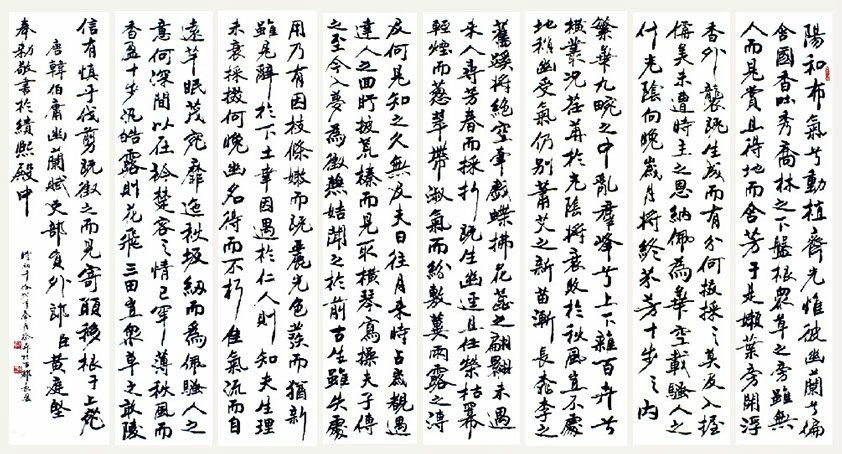 陽和布氣兮動植齊光惟彼幽蘭兮偏
含國香吐秀喬林之下盤根衆草之旁雖無
人而見賞且得地而含芳于是嫩葉旁開浮
香外襲既生成而有分何掇採之莫及入握
稱美未遭時主之恩納佩為華空載騷人之
什光陰向晚歲月將終芬芳十步之内
繁華九畹之中亂羣峰兮上下雜百卉兮
橫叢况荏苒於光陰將衰敗於秋風豈不處
地稍幽受氣仍别蕭艾之新苗漸長桃李之
舊蹊將絶空牽戲蝶拂花蕊之翩翩未遇
來人尋芳春而採折既生幽逕且任榮枯冪
輕煙而葱翠帶淑氣而紛敷冀雨露之溥
及何見知之久無及夫日往月來時占歲覩遇
達人之回盻披荒榛而見取橫琴寫操夫子傳
之至今入夢為徵燕姞聞之於前古生雖失處
用乃有因枝條嫩而既麗光色發而猶新
雖見辭於下土幸因遇於仁人則知夫生理
未衰採掇何晚幽名得而不朽佳氣流而自
遠芊眠茂宛靡迤秋坂紉而為佩騷人之
意何深間以在衿楚客之情已罕薄秋風而
香盈十步汎皓露則花飛三田豈衆草之敢陵
信有慎乎伐剪既徵之而見寄願移根于上苑
唐韓伯庸幽蘭賦吏部負外郎臣黄庭堅
奉勅敬書於績熙殿中